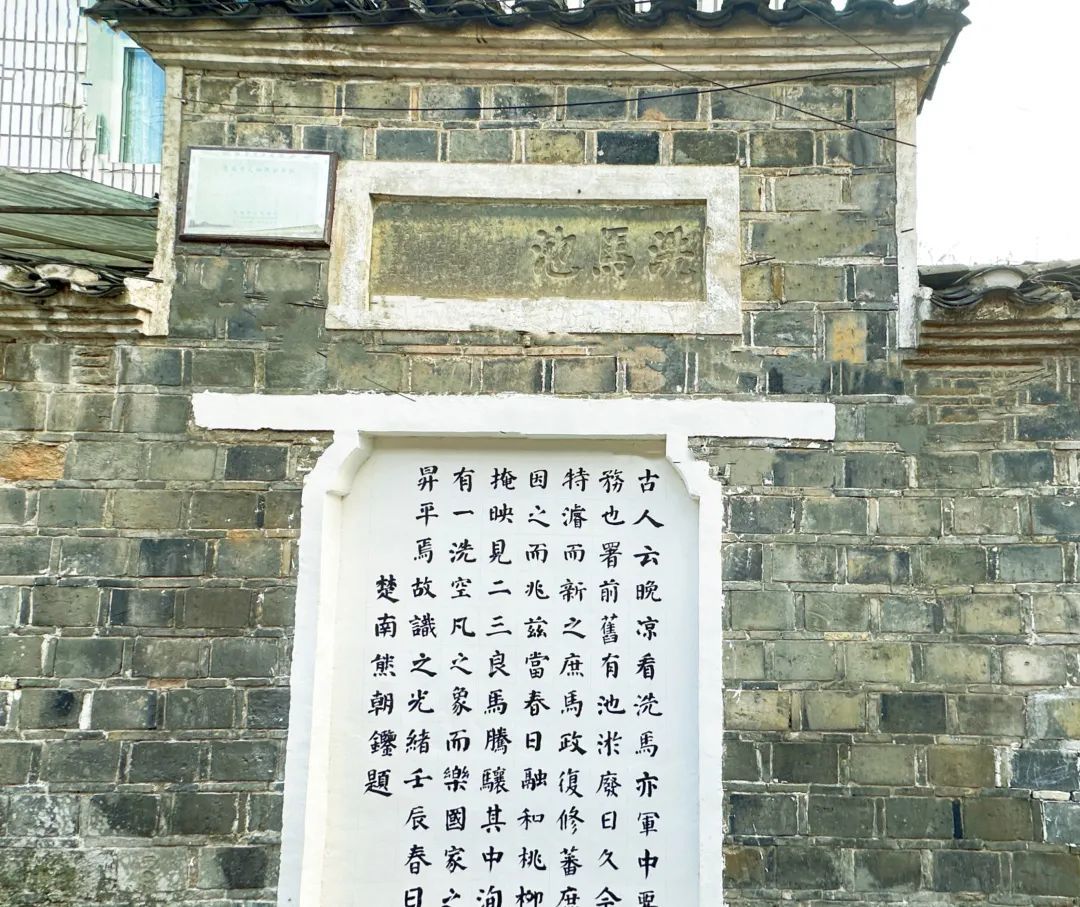 洗馬池
古人云晚凉看洗馬亦軍中要
務也署前舊有池淤廢日久今
特濬而新之庶馬政復修蕃庶
因之而兆茲當春日融和桃柳
掩映見二三良馬騰驤其中洵
有一洗空凡之象而樂國家之
昇平焉故識之光緒壬辰春日
楚南熊朝題